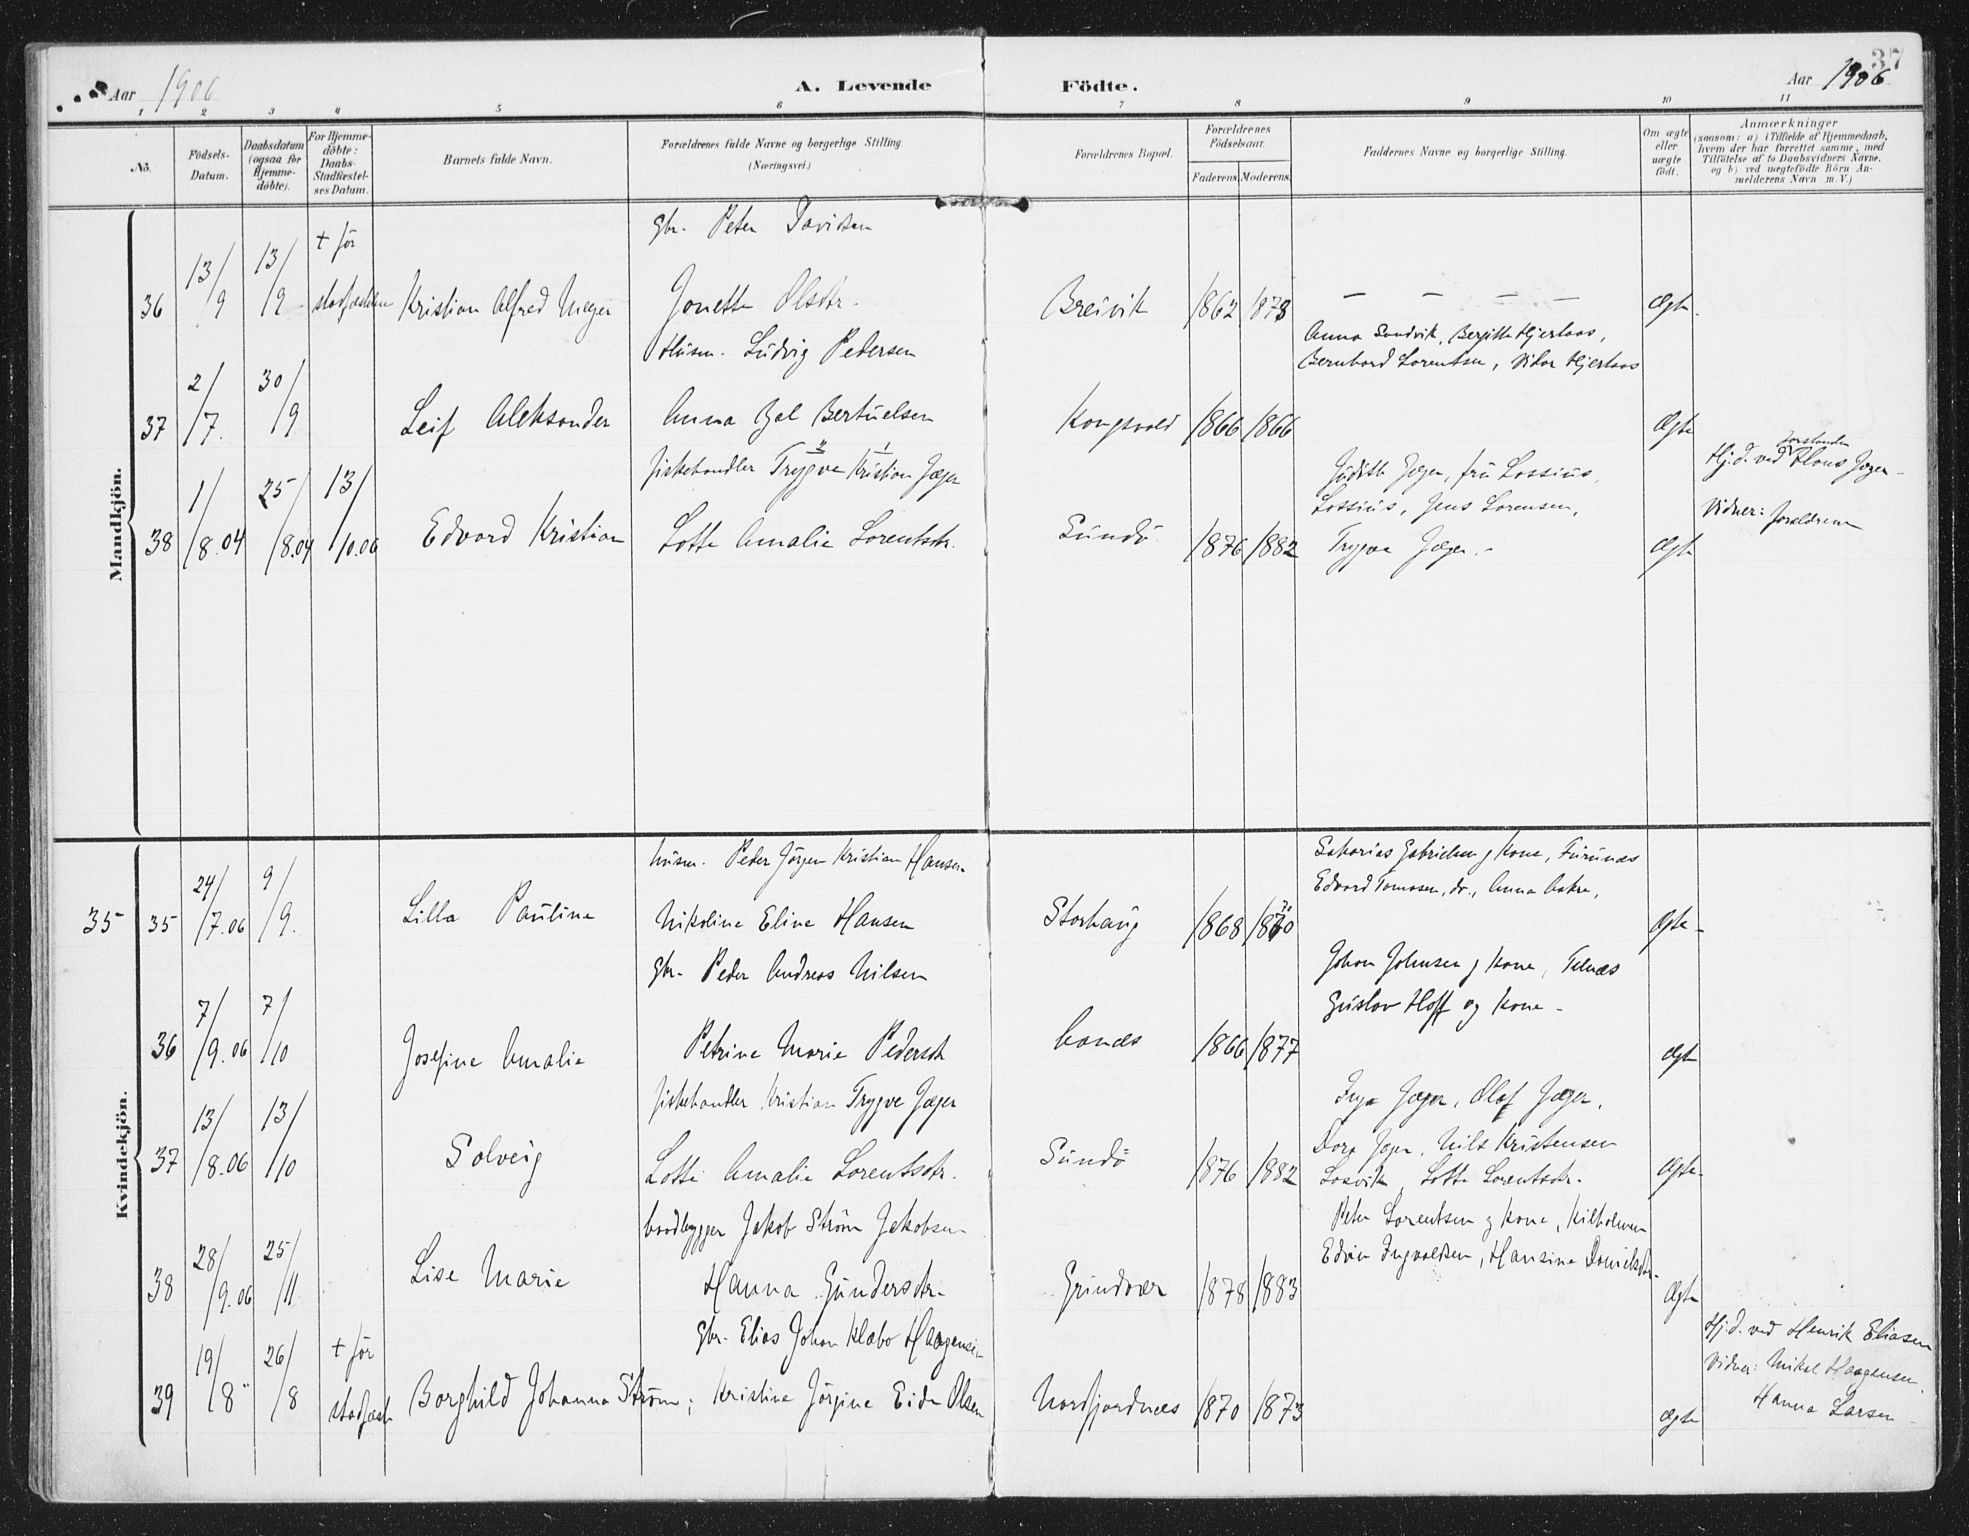 37
Aar 1906
A. Levende Födte.
Aar 1906
1 2 3 4 5 6 7 8 9 10 11
No.
Födsels-Datum.
Daabsdatum (ogsaa for Hjemme-döbte).
For Hjemme-döbte: Daabs-Stadfæstel-ses Datum.
Barnets fulde Navn.
Forældrenes fulde Navne og borgerlige Stilling.
(Næringsvei.)
Forældrenes Bopæl.
Forældrenes Födselsaar.
Faderens. Moderens.
Faddernes Navne og borgerlige Stilling.
Om ægte eller uægte födt.
Anmærkninger
(saasom: a) i Tilfælde af Hjemmedaab,
hvem der har forrettet samme, med
Tilföielse af to Daabsvidners Navne,
og b) ved uægtefödte Börn An-
melderens Navn m. V.)
Mandkjön.
Gbr. Peter Davidsen
36 13/9 13/9 + før stadfæstelsen Kristian Alfred Meyer Jonette Olsdtr. Breivik 1862 1878 — — — — Ægte.
Husm. Ludvig Pedersen
Anna Sandvik, Bergitte Hjertaas,
Bernhard Lorentsen, Viktor Hjertaas
37 2/7. 30/9 Leif Aleksander Anna Bertuelsen Kongsvold 1866 1866 Ægte
fiskehandler Trygve Kristian Jæger
2 1
Judith Jæger, fru Lossius,
Lossius, Jens Lorensen,
Hj.d. ved Klaus Jæger
Vidner: forældrene
38 1/8.04 25/8.04 13/10.06 Edvard Kristian Lotte Amalie Lorentsdtr. Sundö 1876 1882 Trygve Jæger. - Ægte
Kvindekjön.
husm. Peder Jörgen Kristian Hansen
Sakarias Gabrielsen og Kone, Furunæs
Edvard Tomasen, do., Anna Aakre,
35 35 24/7.06 9/9. Lilla Pauline Nikoline Eline Hansen Storhaug 1868 1870 Ægte-
Gbr. Peder Andreas Nilsen
Johan Johnsen og Kone,
Gustav Hoff og Kone -
36 7/9.06 7/10 Josefine Amalie Petrine Marie Pedersdtr 1866 1877 ægte
fiskehandler Kristian Trygve Jæger
Inga Jæger, Olaf Jæger,
37 13/8.06 13/10 Solveig Lotte Amalie Lorentsdtr. Sundö 1876 1882 Nils Kristensen Ægte-
Losvik, Lotte Lorentsdtr.
baadbygger Jakob Ström Jakobsen
Peter Lorentsen og Kone, Kilholmen
Edvin Ingvaldsen, Hansine Danielsdtr.
38 28/9.06 25/11 Lise Marie Hanna Gundersdtr. Grindvær 1878 1883 Ægte
Gbr. Elias Johan Klæbo Haagensen
Hj.d. ved Henrik Eliasen
Vidner: Mikal Haagensen,
Hanna Larsen
39 19/8" 26/8 + før stadfæst Borghild Johanna Strøm; Kristine Jörgine Eide Olsen Nordfjordnæs 1870 1873 ægte